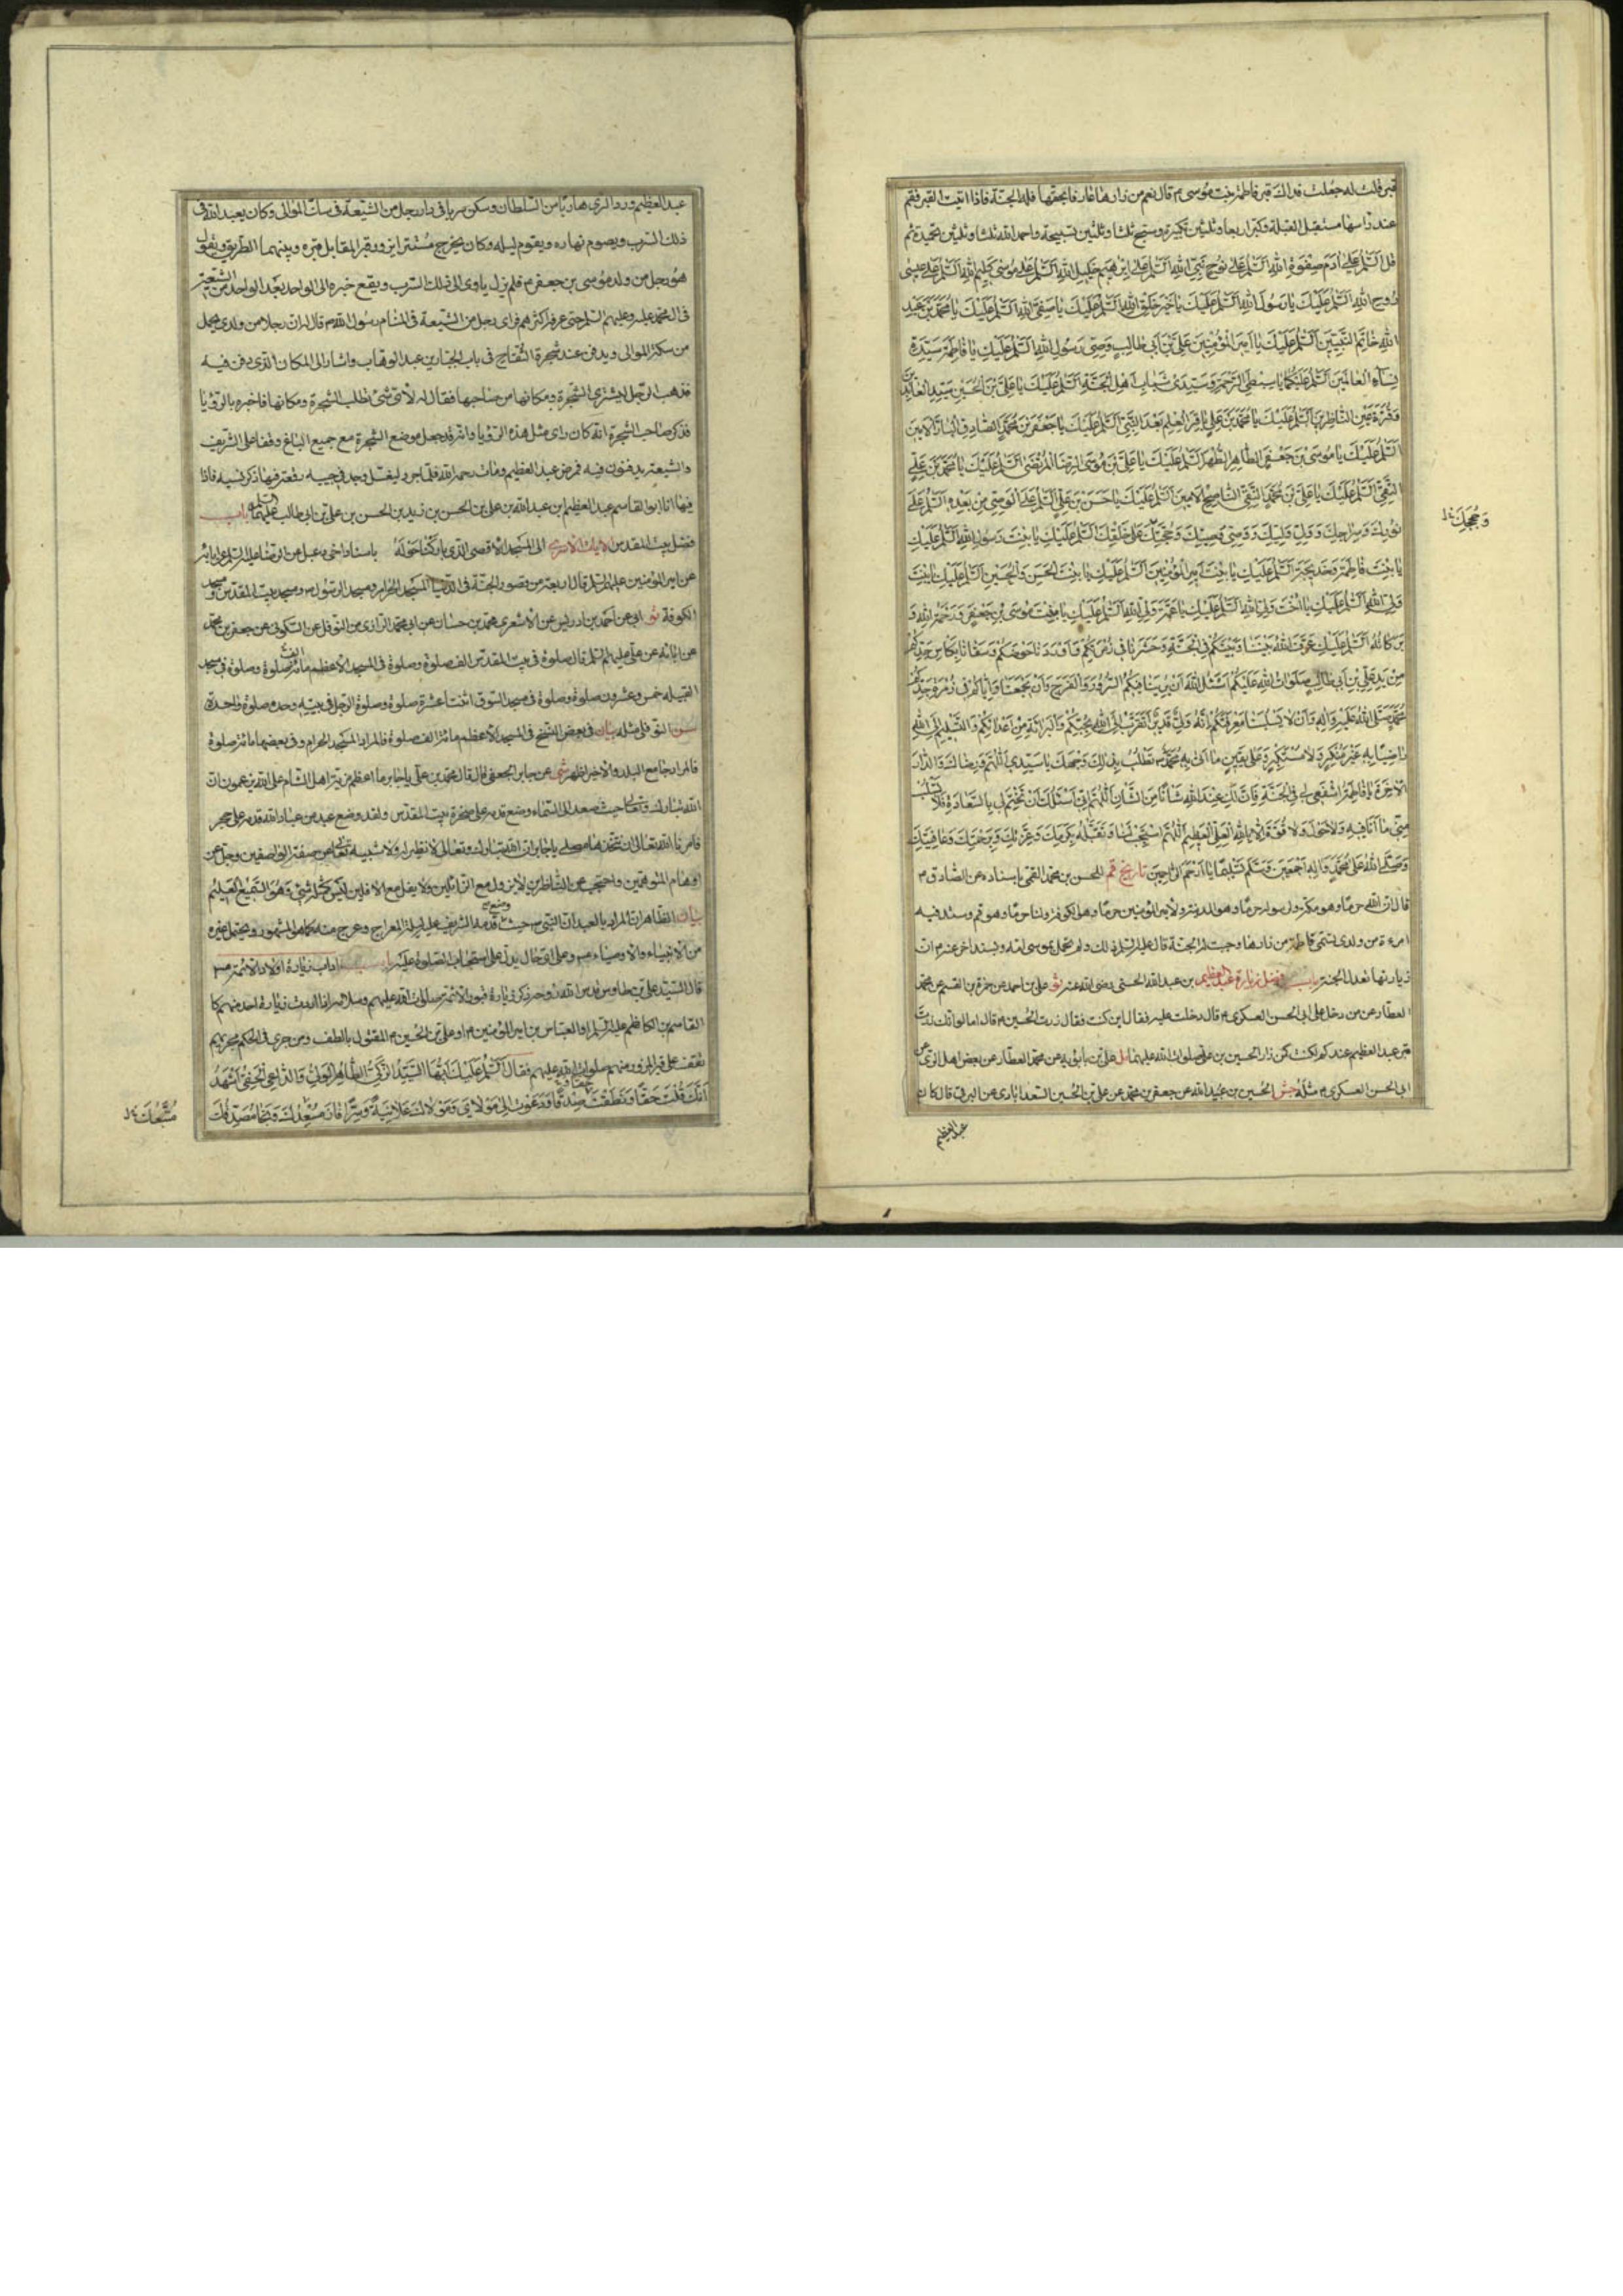 قبر قلت له جعلت فداك قبر فاطمة بنت موسى ۴ قال نعم من زارها عارفا بحقها فله الجنة فاذا اتيت القبر فقم
عند راسها مستقبل القبلة وكبر اربعا وثلثين تكبيرة وسبح ثلثا وثلثين تسبيحة واحمد الله ثلثا وثلثين تحميدة ثم
قل السلم على ادم صفوة الله السلم على نوح نبي الله السلم على ابرهيم خليل الله السلم على موسى كليم الله السلم على عيسى
روح الله السلم عليك يا رسول الله السلم عليك يا خير خلق الله السلم عليك يا صفي الله السلم عليك يا محمد بن عبد
الله خاتم النبيين السلم عليك يا امير المؤمنين علي بن ابي طالب وصي رسول الله السلم عليك يا فاطمة سيدة
نساء العالمين السلم عليكما يا سبطي الرحمة وسيدي شباب اهل الجنة السلم عليك يا علي بن الحسين سيد العابدين
وقرة عين الناظرين السلم عليك يا محمد بن علي باقر العلم بعد النبي السلم عليك يا جعفر بن محمد الصادق البار الامين
السلم عليك يا موسى بن جعفر الطاهر الطهر السلم عليك يا علي بن موسى الرضا المرتضى السلم عليك يا محمد بن علي
التقي السلم عليك يا علي بن محمد النقي الناصح الامين السلم عليك يا حسن بن علي السلم على الوصي من بعده اللهم صل على
نورك وسراجك وولي وليك ووصي وصيك وحجتك على خلقك السلم عليك يا بنت رسول الله السلم عليك
يا بنت فاطمة وخديجة السلم عليك يا بنت امير المؤمنين السلم عليك يا بنت الحسن والحسين السلم عليك يا بنت
ولي الله السلم عليك يا اخت ولي الله السلم عليك يا عمة ولي الله السلم عليك يا بنت موسى بن جعفر ورحمة الله و
بركاته السلم عليك عرف الله بيننا وبينكم في الجنة وحشرنا في زمرتكم واوردنا حوض نبيكم وسقانا بكاس جدكم
من يد علي بن ابي طالب صلوات الله عليكم اسئل الله ان يرينا فيكم السرور والفرج وان يجمعنا واياكم في زمرة جدكم
محمد صلى الله عليه واله وان لا يسلبنا معرفتكم انه ولي قدير اتقرب الى الله بحبكم والبرائة من اعدائكم والتسليم الى الله
راضيا به غير منكر ولا مستكبر وعلى يقين ما اتى به محمد نطلب بذلك وجهك يا سيدي اللهم ورضاك والدار
الاخرة يا فاطمة اشفعي لي في الجنة فان لك عند الله شانا من الشان اللهم اني اسئلك ان تختم لي بالسعادة فلا تسلب
مني ما انا فيه ولا حول ولا قوة الا بالله العلي العظيم اللهم استجب لنا وتقبله بكرمك وعزتك وبرحمتك وعافيتك
وصلى الله على محمد واله اجمعين وسلم تسليما يا ارحم الراحمين تاريخ قم للحسن بن محمد القمي باسناده عن الصادق ۴
قال ان لله حرما وهو مكة ولرسوله حرما وهو المدينة ولامير المؤمنين حرما وهو الكوفة ولنا حرما وهو قم وستدفن فيه
امرءة من ولدي تسمى فاطمة من زارها وجبت له الجنة قال عليه السلم ذلك ولم تحمل بموسى امه وبسند اخر عنه ۴ ان
زيارتها تعدل الجنة باب فضل زيارة عبد العظيم بن عبد الله الحسني رضي الله عنه ثو علي بن احمد عن حمزة بن القسم عن محمد
العطار عمن دخل على ابي الحسن العسكري ۴ قال دخلت عليه فقال اين كنت فقال زرت الحسين ۴ قال اما لو انك زرت
قبر عبد العظيم عندكم لكنت كمن زار الحسين بن علي صلوات الله عليهما مل علي بن بابويه عن محمد العطار عن بعض اهل الري عن
ابي الحسن العسكري ۴ مثله جش الحسين بن عبيد الله عن جعفر بن محمد عن علي بن الحسين السعد ابادي عن البرقي قال كان
عبد العظيم
وحججك
عبد العظيم ورد الري هاربا من السلطان وسكن سربا في دار رجل من الشيعة في سكة الموالي وكان يعبد الله في
ذلك السرب ويصوم نهاره ويقوم ليله وكان يخرج مستترا يزور قبرا المقابل قبره وبينهما الطريق ويقول
هو رجل من ولد موسى بن جعفر ۴ فلم يزل ياوي الى ذلك السرب ويقع خبره الى الواحد بعد الواحد من الشيعة
ال محمد عليه وعليهم السلم حتى عرفه اكثرهم فراى رجل من الشيعة في المنام رسول الله ۴ قال له ان رجلا من ولدي يحمل
من سكة الموالي ويدفن عند شجرة التفاح في باب الجبار بن عبد الوهاب واشار الى المكان الذي دفن فيه
فذهب الرجل ليشتري الشجرة ومكانها من صاحبها فقال له لاي شئ تطلب الشجرة ومكانها فاخبره بالرؤيا
فذكر صاحب الشجرة انه كان راى مثل هذه الرؤيا وانه قد جعل موضع الشجرة مع جميع الباغ وقفا على الشريف
والشيعة يدفنون فيه فمرض عبد العظيم ومات رحمه الله فلما جرد ليغسل وجد في جيبه رقعة فيها ذكر نسبه فاذا
فيها انا ابو القاسم عبد العظيم بن عبد الله بن علي بن الحسن بن زيد بن الحسن بن علي بن ابي طالب عليهما السلم باب
فضل بيت المقدس الايات الاسرى الى المسجد الاقصى الذي باركنا حوله باسناد اخي دعبل عن الرضا عليه السلم عن ابائه
عن امير المؤمنين عليهم السلم قال اربعة من قصور الجنة في الدنيا المسجد الحرام ومسجد الرسول ۴ ومسجد بيت المقدس ومسجد
الكوفة ثو ابي عن احمد بن ادريس عن الاشعري عن محمد بن حسان عن ابي محمد الرازي عن النوفلي عن السكوني عن جعفر بن محمد
عن ابائه عن علي عليهم السلم قال صلوة في بيت المقدس الف صلوة وصلوة في المسجد الاعظم مائة الف صلوة وصلوة في مسجد
القبيلة خمس وعشرون صلوة وصلوة في مسجد السوق اثنتا عشرة صلوة وصلوة الرجل في بيته وحده صلوة واحدة
سن النوفلي مثله بيان في بعض النسخ في المسجد الاعظم مائة الف صلوة فالمراد المسجد الحرام وفي بعضها مائة صلوة
فالمراد جامع البلد والاخير اظهر شي عن جابر الجعفي قال قال محمد بن علي يا جابر ما اعظم فرية اهل الشام على الله يزعمون ان
الله تبارك وتعالى حيث صعد الى السماء وضع قدمه على صخرة بيت المقدس ولقد وضع عبد من عباد الله قدمه على حجر
فامرنا الله تعالى ان نتخذها مصلى يا جابر ان الله تبارك وتعالى لا نظير له ولا شبيه تعالى عن صفة الواصفين وجل عن
اوهام المتوهمين واحتجب عن الناظرين لا يزول مع الزائلين ولا يفل مع الافلين ليس كمثله شئ وهو السميع العليم
بيان الظاهر ان المراد بالعبد ان النبي ۴ حيث وضع قدمه الشريف عليه ليلة المعراج وعرج منه كما هو المشهور ويحتمل غيره
من الانبياء والاوصياء ۴ وعلى اي حال يدل على استحباب الصلوة عليه باب اداب زيارة اولاد الائمة
قال السيد علي بن طاوس قدس الله روحه ذكر زيارة قبور الائمة صلوات الله عليهم وسلامه اذا اردت زيارة احد منهم كا
القاسم بن الكاظم عليه السلم او العباس بن امير المؤمنين ۴ او علي بن الحسين ۴ المقتول بالطف ومن جرى في الحكم مجريهم
تقف على قبر المزور منهم صلوات الله عليهم فقل السلم عليك ايها السيد الزكي الطاهر الولي والداعي الحفي اشهد
انك قلت حقا ونطقت حقا وصدقا ودعوت الى مولاي ومولاك علانية وسرا فاز متبعك ونجا مصدقك
مسعدك